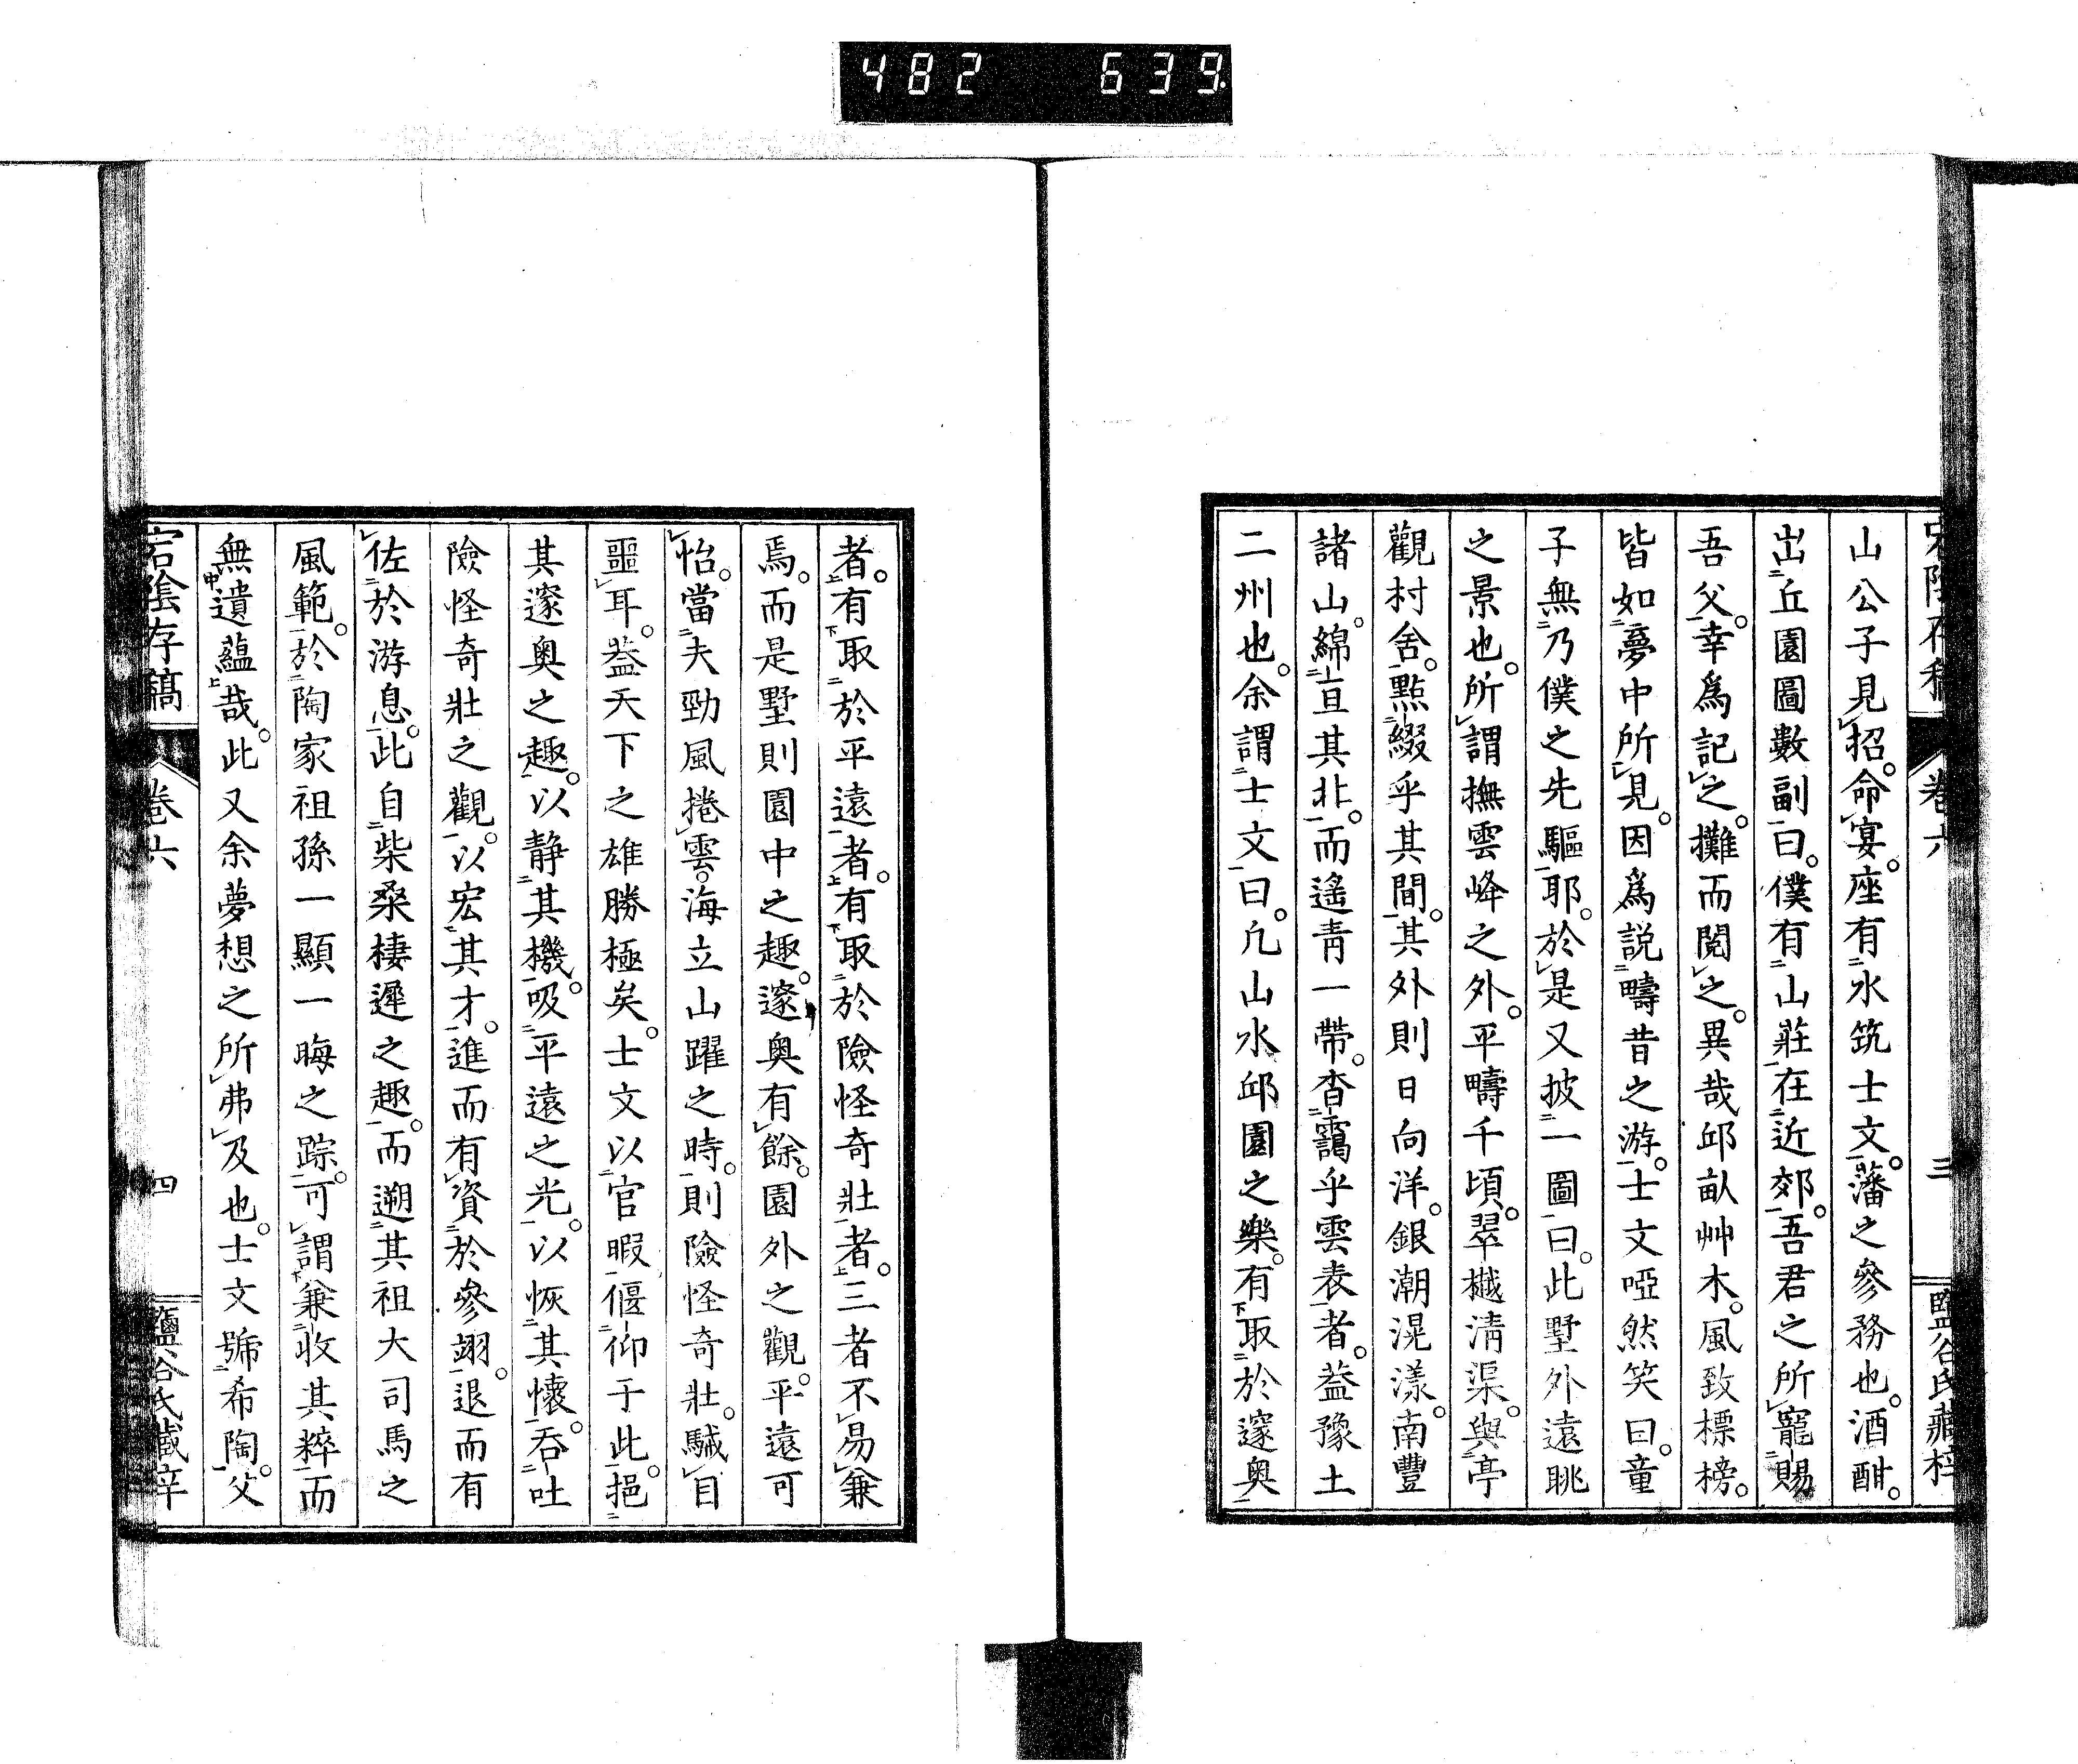 482 639
宕陰存稿 卷六 三 鹽谷氏藏梓
山公子見招。命宴。座有水筑士文。藩之參務也。酒酣。
出丘園圖數副曰。僕有山莊在近郊。吾君之所寵賜
吾父。幸爲記之。攤而閲之。異哉邱畝艸木。風致標榜。
皆如夢中所見。因爲説疇昔之游。士文啞然笑曰。童
子無乃僕之先驅耶。於是又披一圖曰。此墅外遠眺
之景也。所謂撫雲峰之外。平疇千頃。翠樾淸渠。與亭
觀村舍。點綴乎其間。其外則日向洋。銀潮滉漾。南豐
諸山。綿亘其北。而遙靑一帶。杳靄乎雲表者。葢豫土
二州也。余謂士文曰。凡山水邱園之樂。有取於邃奥
者。有取於平遠者。有取於險怪奇壯者。三者不易兼
焉。而是墅則園中之趣。邃奥有餘。園外之觀。平遠可
怡。當夫勁風捲雲。海立山躍之時。則險怪奇壯。駴目
噩耳。葢天下之雄勝極矣。士文以官暇偃仰于此。挹
其邃奥之趣。以静其機。吸平遠之光。以恢其懷。吞吐
險怪奇壯之觀。以宏其才。進而有資於參翊。退而有
佐於游息。此自柴桑棲遲之趣。而遡其祖大司馬之
風範。於陶家祖孫一顯一晦之踪。可謂兼收其粹而
無遺蘊哉。此又余夢想之所弗及也。士文號希陶。父
宕陰存稿 卷六 四 鹽谷氏藏梓